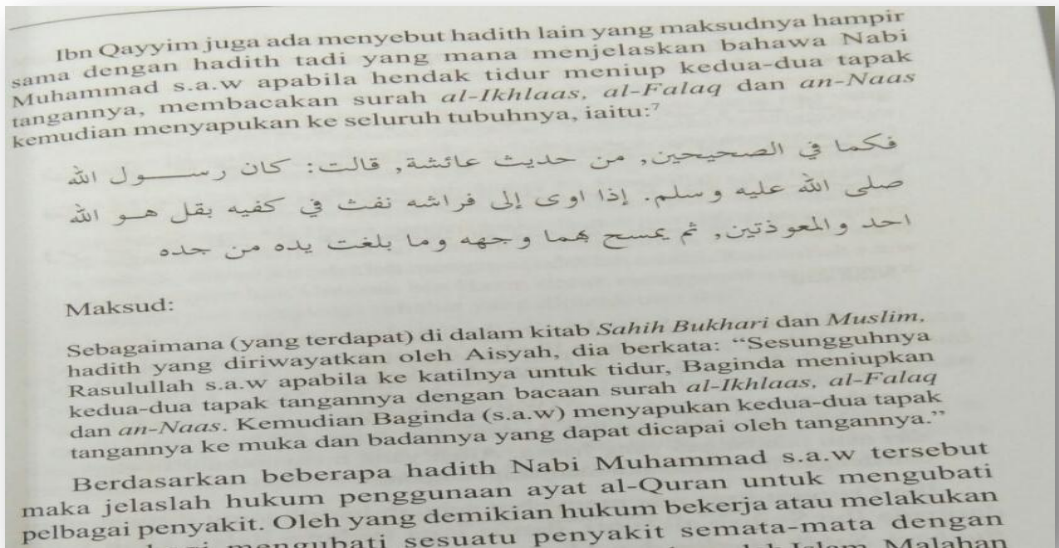 Ibn Qayyim juga ada menyebut hadith lain yang maksudnya hampir
sama dengan hadith tadi yang mana menjelaskan bahawa Nabi
Muhammad s.a.w apabila hendak tidur meniup kedua-dua tapak
tangannya, membacakan surah al-Ikhlaas, al-Falaq dan an-Naas
kemudian menyapukan ke seluruh tubuhnya, iaitu:⁷
فكما في الصحيحين, من حديث عائشة, قالت: كان رســـول الله
صلى الله عليه وسلم. إذا اوى إلى فراشه نفث في كفيه بقل هـــو الله
احد والمعوذتين, ثم يمسح بهما وجهه وما بلغت يده من حده
Maksud:
Sebagaimana (yang terdapat) di dalam kitab Sahih Bukhari dan Muslim,
hadith yang diriwayatkan oleh Aisyah, dia berkata: “Sesungguhnya
Rasulullah s.a.w apabila ke katilnya untuk tidur, Baginda meniupkan
kedua-dua tapak tangannya dengan bacaan surah al-Ikhlaas, al-Falaq
dan an-Naas. Kemudian Baginda (s.a.w) menyapukan kedua-dua tapak
tangannya ke muka dan badannya yang dapat dicapai oleh tangannya.”
Berdasarkan beberapa hadith Nabi Muhammad s.a.w tersebut
maka jelaslah hukum penggunaan ayat al-Quran untuk mengubati
pelbagai penyakit. Oleh yang demikian hukum bekerja atau melakukan
mengubati sesuatu penyakit semata-mata dengan
Islam. Malahan